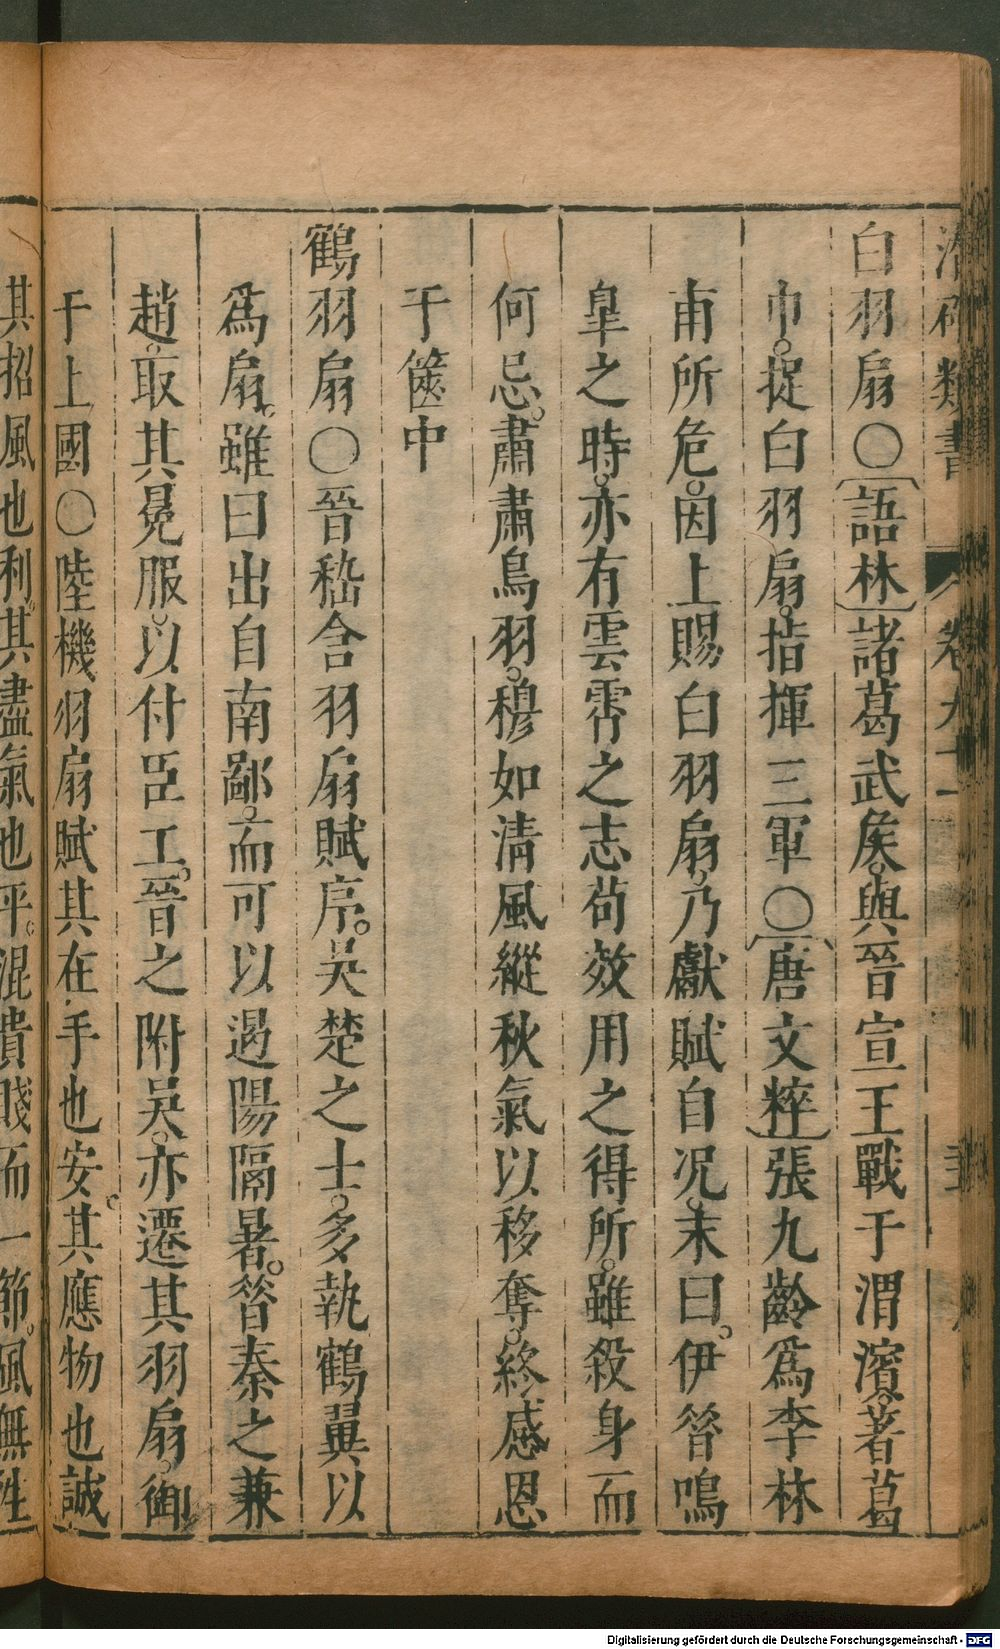 潛確類書
卷九十
白羽扇○語林諸葛武矦與晉宣王戰于渭濱著葛
巾捉白羽扇指揮三軍○唐文粹張九齡爲李林
甫所危因上賜白羽扇乃獻賦自况末曰伊昝鳴
臯之時亦有雲霄之志茍效用之得所雖殺身而
何忌肅肅鳥羽穆如清風縱秋氣以移奪終感恩
于篋中
鶴羽扇○晉嵇含羽扇賦序吴楚之士多執鶴翼以
爲扇雖曰出自南鄙而可以遏陽隔暑昝秦之兼
趙取其冕服以付臣工晉之附吴亦遷其羽扇御
于上國○陸機羽扇賦其在手也安其應物也誠
其招風也利其盡氣也平混貴賤而一節風無性
Digitalisierung gefördert durch die Deutsche Forschungsgemeinschaft - DFG